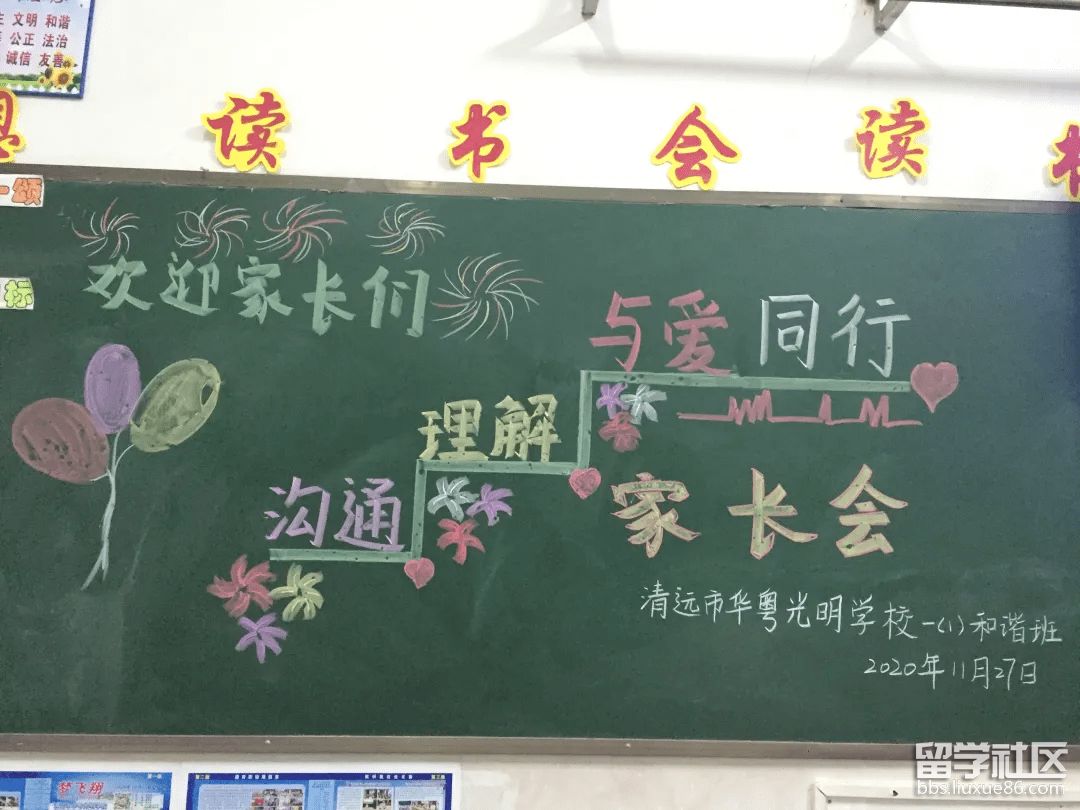 文明 和谐
公正 法治
诚信 友善
读 书 会 读
颂
标
欢迎家长们
与爱同行
理解
沟通
家长会
清远市华粤光明学校一(1)和谐班
2020年11月27日
梦飞翔
留学社区
bbs.liuxue86.com